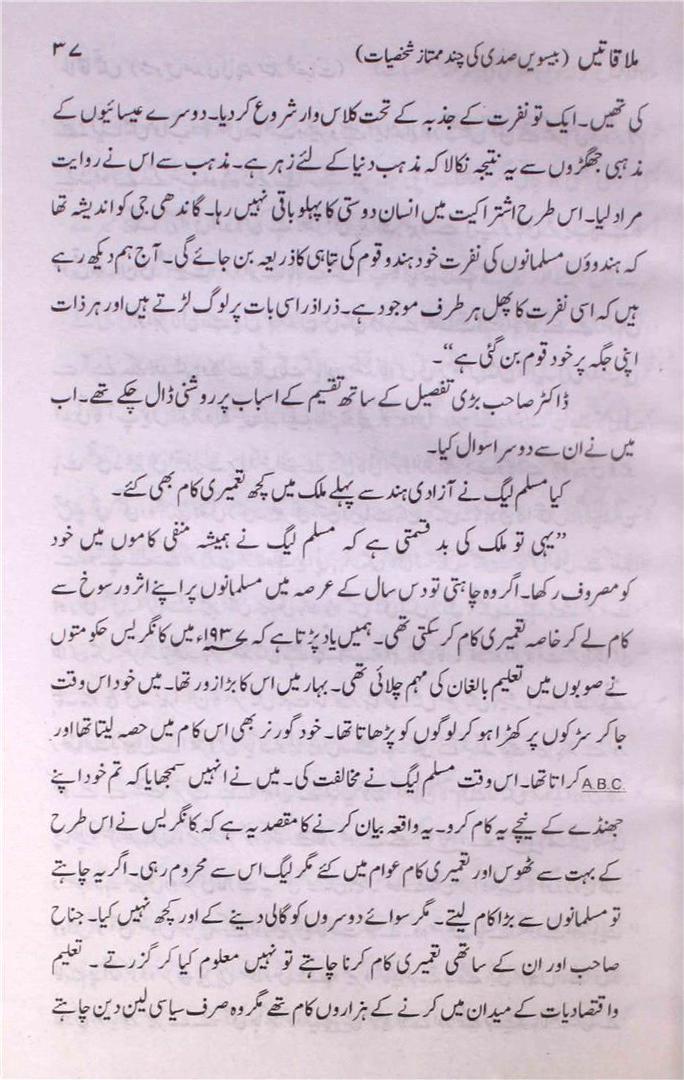 ملاقاتیں (بیسویں صدی کی چند ممتاز شخصیات) ۳۷
کی تھیں۔ ایک تو نفرت کے جذبہ کے تحت کلاس وار شروع کر دیا۔ دوسرے عیسائیوں کے
مذہبی جھگڑوں سے یہ نتیجہ نکالا کہ مذہب دنیا کے لئے زہر ہے۔ مذہب سے اس نے روایت
مراد لیا۔ اس طرح اشتراکیت میں انسان دوستی کا پہلو باقی نہیں رہا۔ گاندھی جی کو اندیشہ تھا
کہ ہندوؤں مسلمانوں کی نفرت خود ہندو قوم کی تباہی کا ذریعہ بن جائے گی۔ آج ہم دیکھ رہے
ہیں کہ اسی نفرت کا پھل ہر طرف موجود ہے۔ ذرا ذرا سی بات پر لوگ لڑتے ہیں اور ہر ذات
اپنی جگہ پر خود قوم بن گئی ہے“۔
ڈاکٹر صاحب بڑی تفصیل کے ساتھ تقسیم کے اسباب پر روشنی ڈال چکے تھے۔ اب
میں نے ان سے دوسرا سوال کیا۔
کیا مسلم لیگ نے آزادی ہند سے پہلے ملک میں کچھ تعمیری کام بھی کئے۔
”یہی تو ملک کی بد قسمتی ہے کہ مسلم لیگ نے ہمیشہ منفی کاموں میں خود
کو مصروف رکھا۔ اگر وہ چاہتی تو دس سال کے عرصہ میں مسلمانوں پر اپنے اثر و رسوخ سے
کام لے کر خاصہ تعمیری کام کر سکتی تھی۔ ہمیں یاد پڑتا ہے کہ ۱۹۳۷ء میں کانگریس حکومتوں
نے صوبوں میں تعلیم بالغان کی مہم چلائی تھی۔ بہار میں اس کا بڑا زور تھا۔ میں خود اس وقت
جا کر سڑکوں پر کھڑا ہو کر لوگوں کو پڑھاتا تھا۔ خود گورنر بھی اس کام میں حصہ لیتا تھا اور
A.B.C. کراتا تھا۔ اس وقت مسلم لیگ نے مخالفت کی۔ میں نے انہیں سمجھایا کہ تم خود اپنے
جھنڈے کے نیچے یہ کام کرو۔ یہ واقعہ بیان کرنے کا مقصد یہ ہے کہ کانگریس نے اس طرح
کے بہت سے ٹھوس اور تعمیری کام عوام میں کئے مگر لیگ اس سے محروم رہی۔ اگر یہ چاہتے
تو مسلمانوں سے بڑا کام لیتے۔ مگر سوائے دوسروں کو گالی دینے کے اور کچھ نہیں کیا۔ جناح
صاحب اور ان کے ساتھی تعمیری کام کرنا چاہتے تو نہیں معلوم کیا کر گزرتے۔ تعلیم
و اقتصادیات کے میدان میں کرنے کے ہزاروں کام تھے مگر وہ صرف سیاسی لین دین چاہتے